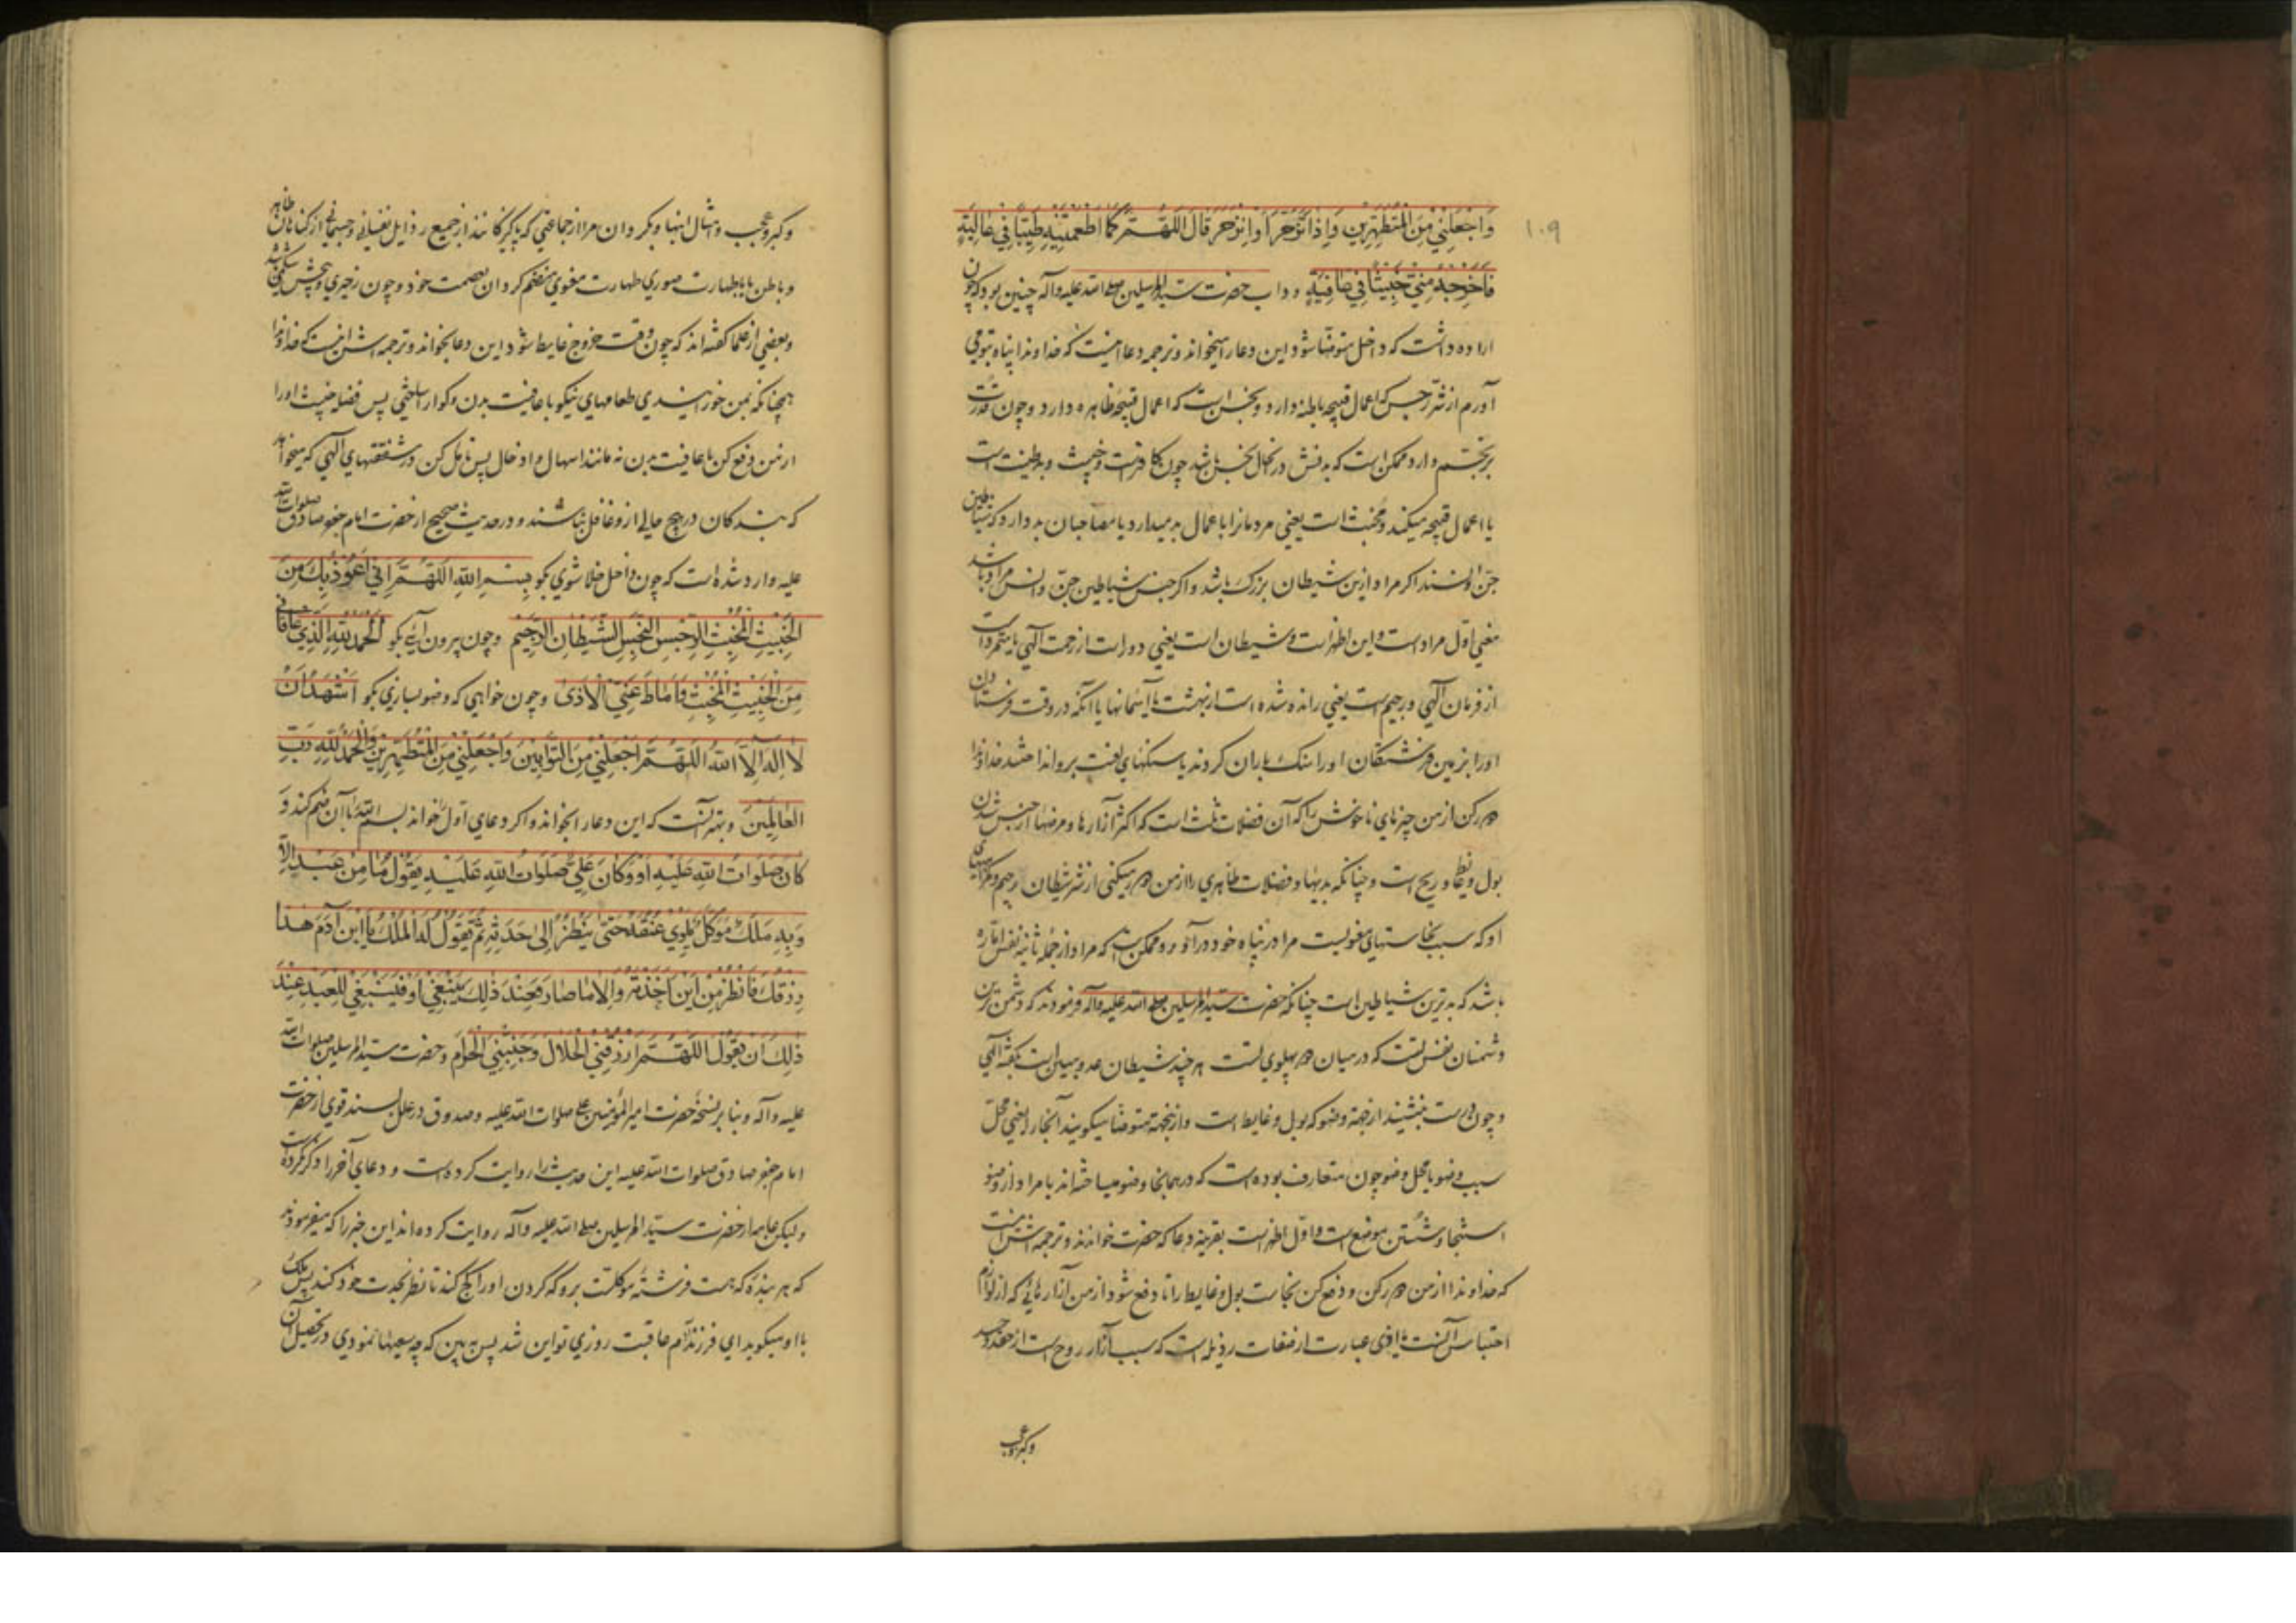 ۱۰۹
وَاجْعَلْنِي مِنَ الْمُتَطَهِّرِينَ وَاِذَا تَزَحَّرَ اَوِانْزَحَرَ قَالَ اللَّهُمَّ كَمَا اَطْعَمْتَنِيهِ طَيِّبًا فِي عَافِيَةٍ
فَاَخْرِجْهُ مِنِّي خَبِيثًا فِي عَافِيَةٍ وداب حضرت سيد المرسلين صلى الله عليه وآله چنين بود كه چون
اراده داشت كه داخل متوضا شود اين دعا را ميخواند و ترجمه دعا اينست كه خداوندا پناه بتو مي
آورم از شر رجس كه اعمال قبيحه باطنه دارد و نجس است كه اعمال قبيحه ظاهره دارد و چون قدرت
بر تجسم دارد ممكن است كه بدنش در انحال نجس باشد چون كافر است و خبيث و بدطينت است
يا اعمال قبيحه ميكند و مخبث است يعني مردمانرا باعمال بد ميدارد يا مصاحبان بد دارد كه شياطين
جن و انسند اكر مراد ازين شيطان بزرك باشد و اكر جنس شياطين جن و انس مراد باشد
معني اول مراد است و اين اظهر است و شيطان است يعني دور است از رحمت آلهي يا متمرد است
از فرمان آلهي و رجيم است يعني رانده شده است از بهشت يا آسمانها يا آنكه در وقت فرستادن
اورا بزمين فرشتكان اورا سنك باران كردند يا سنكهاي لعنت برو انداختند خداوندا
دور كن از من چيزهاي ناخوش را كه آن فضلات ثلث است كه اكثر آزارها و مرضها از حبس شدن
بول و غايط و ريح است و چنانكه بديها و فضلات ظاهري را از من دور ميكني از شر شيطان رجيم و مكرهاي
او كه سبب نجاستهاي معنويست مرا در پناه خود درآور و ممكن است كه مراد از جمله ثانيه نفس اماره
باشد كه بدترين شياطين است چنانكه حضرت سيد المرسلين صلى الله عليه وآله فرمودند كه دشمن ترين
دشمنان نفس تست كه در ميان دو پهلوي تست هر چند شيطان عدو مبين است بكفته آلهي
و چون درست بنشيند از جهة وضو كه بول و غايط است و ازينجهة متوضا ميكويند آنجا را يعني محل
سبب وضو يا محل وضو چون متعارف بوده است كه در همانجا وضو ميساخته اند يا مراد از وضو
استنجا و شستن موضع است و اول اظهر است بقرينه دعا كه حضرت خواندند و ترجمه اش اينست
كه خداوندا از من دور كن و دفع كن نجاست بول و غايط را تا دفع شود از من آزارهائي كه از لوازم
احتباس آنست يا اذى عبارت از صفات رذيله است كه سبب آزار روح است از حقد و حسد
وكبر وعجب
وكبر و عجب و امثال اينها و بكردان مرا از جماعتي كه پاكيزكانند از جميع رذايل نفساني و جسماني از كناهان ظاهر
و باطن يا با طهارت صوري طهارت معنوي منضم كردان بعصمت خود و چون زحيري و پيچش شكمي باشد
و بعضي از علما كفته اند كه چون وقت خروج غايط شود اين دعا بخواند و ترجمه اش اينست كه خداوندا
همچنانكه بمن خورانيدي طعامهاي نيكو با عافيت بدن و كوارا ساختي پس فضله خبيث اورا
از من دفع كن با عافيت بدن نه مانند اسهال و ادخال پس تامل كن در شفقتهاي آلهي كه ميخواهد
كه بندكان در هيچ حالي ازو غافل نباشند و در حديث صحيح از حضرت امام جعفر صادق صلوات الله
عليه وارد شده است كه چون داخل خلا شوي بكو بِسْمِ اللّٰهِ اللَّهُمَّ اِنِّي اَعُوذُ بِكَ مِنَ
الْخَبِيثِ الْمُخْبِثِ الرِّجْسِ النَّجِسِ الشَّيْطَانِ الرَّجِيمِ و چون بيرون آئي بكو اَلْحَمْدُ لِلّٰهِ الَّذِي عَافَانِي
مِنَ الْخَبِيثِ الْمُخْبِثِ وَاَمَاطَ عَنِّي الْاَذَىٰ و چون خواهي كه وضو بسازي بكو اَشْهَدُ اَنْ
لَا اِلٰهَ اِلَّا اللّٰهُ اللَّهُمَّ اجْعَلْنِي مِنَ التَّوَّابِينَ وَاجْعَلْنِي مِنَ الْمُتَطَهِّرِينَ وَالْحَمْدُ لِلّٰهِ رَبِّ
الْعَالَمِينَ و بهتر آنست كه اين دعا را بخواند و اكر دعاي اول خواند بسم الله را با آن ضم كند وَ
كَانَ صَلَوَاتُ اللّٰهِ عَلَيْهِ اَوْ وَكَانَ عَلِيٌّ صَلَوَاتُ اللّٰهِ عَلَيْهِ يَقُولُ مَا مِنْ عَبْدٍ اِلَّا
وَبِهِ مَلَكٌ مُوَكَّلٌ يَلْوِي عُنُقَهُ حَتَّىٰ يَنْظُرَ اِلَىٰ حَدَثِهِ ثُمَّ يَقُولُ لَهُ الْمَلَكُ يَا ابْنَ آدَمَ هٰذَا
رِزْقُكَ فَانْظُرْ مِنْ اَيْنَ اَخَذْتَهُ وَاِلَىٰ مَا صَارَ فَعِنْدَ ذٰلِكَ يَنْبَغِي اَوْ فَيَنْبَغِي لِلْعَبْدِ عِنْدَ
ذٰلِكَ اَنْ يَقُولَ اللَّهُمَّ ارْزُقْنِي الْحَلَالَ وَجَنِّبْنِي الْحَرَامَ و حضرت سيد المرسلين صلوات الله
عليه وآله و بنا بر نسخه حضرت امير المؤمنين علي صلوات الله عليه و صدوق در علل بسند قوي از حضرت
امام جعفر صادق صلوات الله عليه اين حديث را روايت كرده است و دعاي آخر را ذكر نكرده است
وليكن عامه از حضرت سيد المرسلين صلى الله عليه وآله روايت كرده اند اين خبر را كه ميفرمودند
كه هر بندۀ كه هست فرشتۀ موكلست برو كه كردن اورا كج كند تا نظر بحدث خود كند پس ملك
با او ميكويد اي فرزند آدم عاقبت روزي تو اين شد پس ببين كه چه سعيها نمودي در تحصيل آن